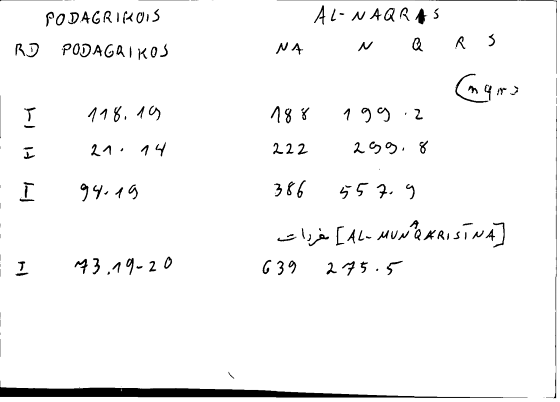 PODAGRIKOIS AL-NAQRIS
RD PODAGRIKOS NA N Q R S
(nqrs
I 118.19 188 199.2
I 21.14 222 299.8
I 94.19 386 557.9
مفردات [AL-MUNAQARISĪNA]
I 73.19-20 639 275.5